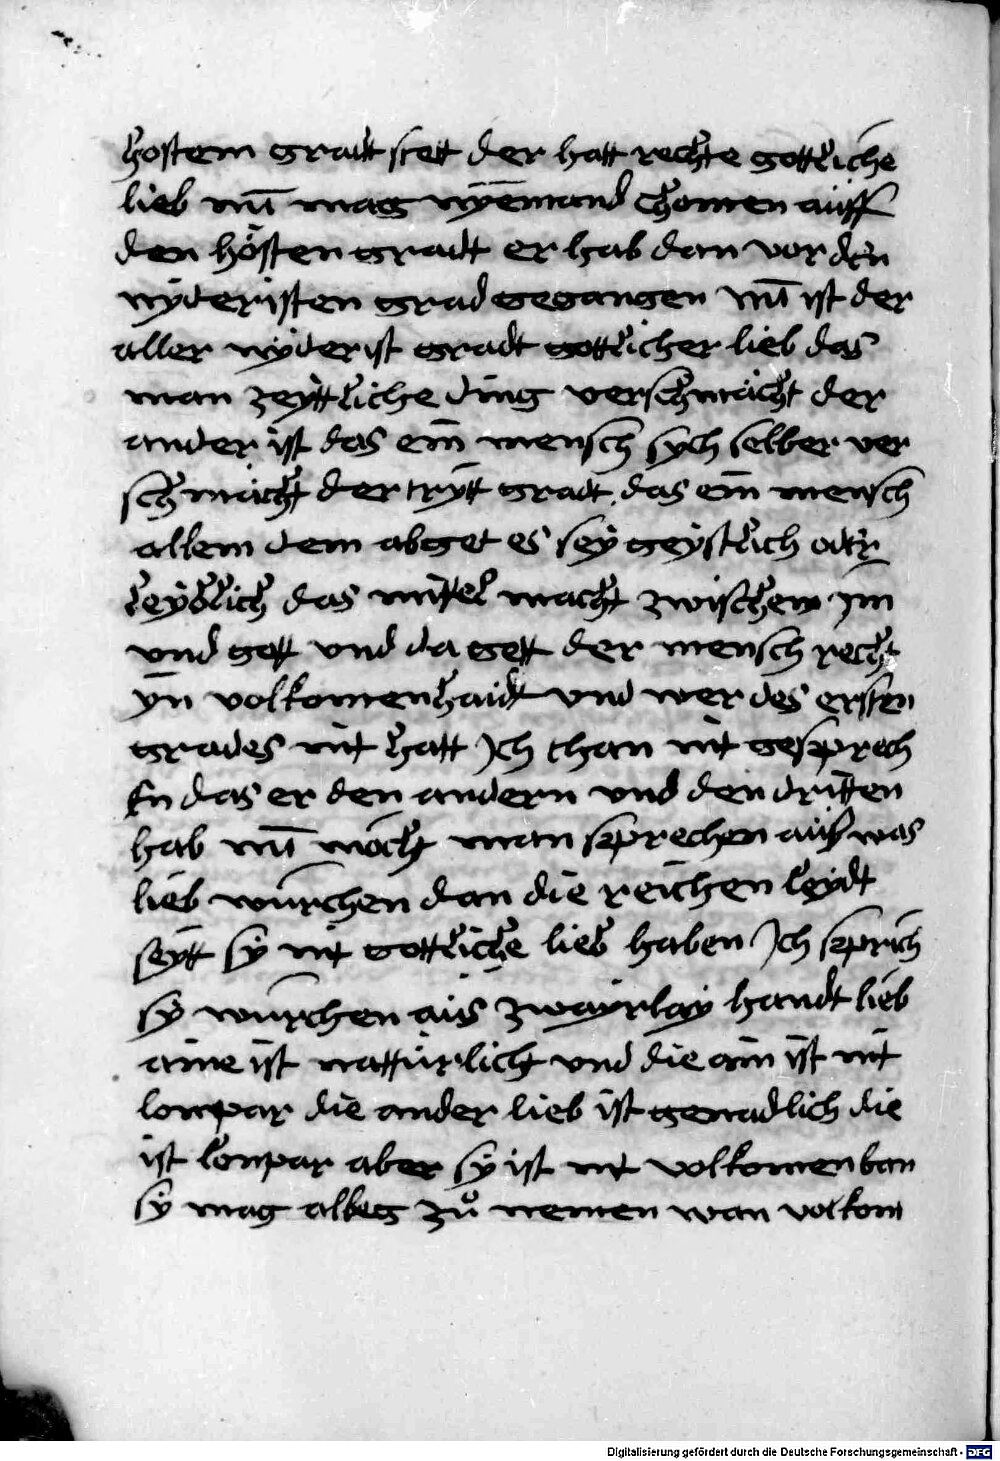 hostem gradt stett der hatt rechte gottliche
lieb nū mag nyēmand chomen aüff
den hösten gradt er hab dan vor den
nyderisten grad gegangen nū ist der
aller nyderist gradt gottlicher lieb das
man zeyttliche ding verschmächt der
ander ist das ein mensch sych selber ver
schmächt der trytt gradt das ein mensch
allem dem abget es sey geystlich oder
leyblich das mittel macht zwischem jm
vnd gott vnd da gett der mensch recht
yn volkomenhaidt vnd wer des ersten
grades nit hatt Jch than nit gesprech
en das er den andern vnd den dritten
hab nū möcht man sprechen auß was
lieb würchen dan die reichen leydt
seytt sy nit gottliche lieb haben Jch sprich
sy würchen aüs zwayrlay handt lieb
aine ist nattürlicht vnd die ain ist nit
lonpar die ander lieb ist genadlich die
ist lonpar aber sy ist nit volkomen ban
sy mag albeg zů nemen wan volkom
Digitalisierung gefördert durch die Deutsche Forschungsgemeinschaft - DFG